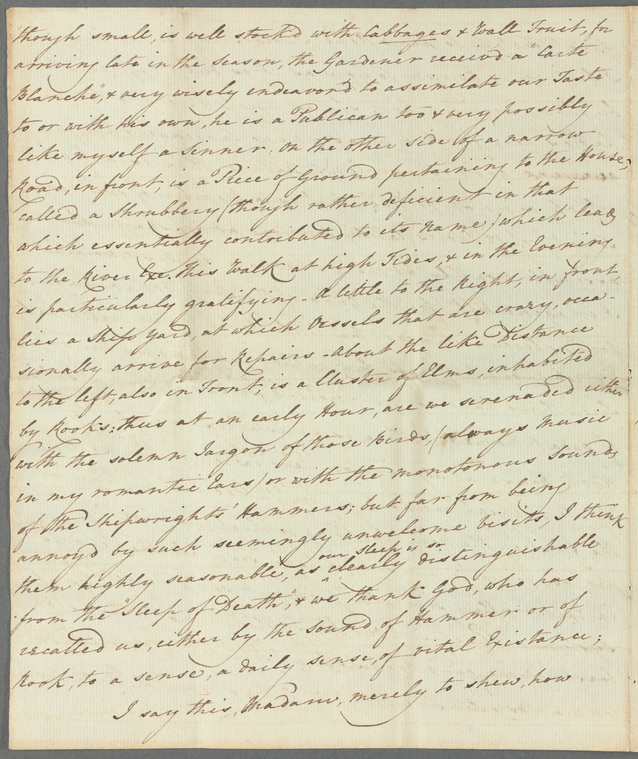 though small, is well stock'd with Cabbages & Wall Fruit, for
arriving late in the season, the Gardener receiv'd a "Carte
Blanche", & very wisely endeavor'd to assimilate our Taste
to or with his own, he is a Publican too & very possibly
like myself a Sinner. On the other side of a narrow
Road, in front, is a Piece of Ground pertaining to the House,
called a Shrubbery (though rather deficient in that
which essentially contributed to its name) which leads
to the River Exe. This Walk at high Tides, & in the Evening
is particularly gratifying - A little to the Right, in front,
lies a Ship Yard, at which Vessels that are crazy, occa-
sionally arrive for Repairs - About the like Distance
to the left, also in Front, is a Cluster of Elms, inhabited
by Rooks; thus at an early Hour, are we serenaded either
with the solemn Jargon of those Birds, (always Music
in my romantic Ears) or with the monotonous Sounds
of the Shipwrights' Hammers; but far from being
annoy'd by such seemingly unwelcome visits, I think
them highly seasonable, as our sleep is so clearly distinguishable
from the "Sleep of Death", & we thank God, who has
recalled us, either by the sound of Hammer or of
Rook, to a sense, a daily sense, of vital Existance;
I say this, Madam, merely to shew, how